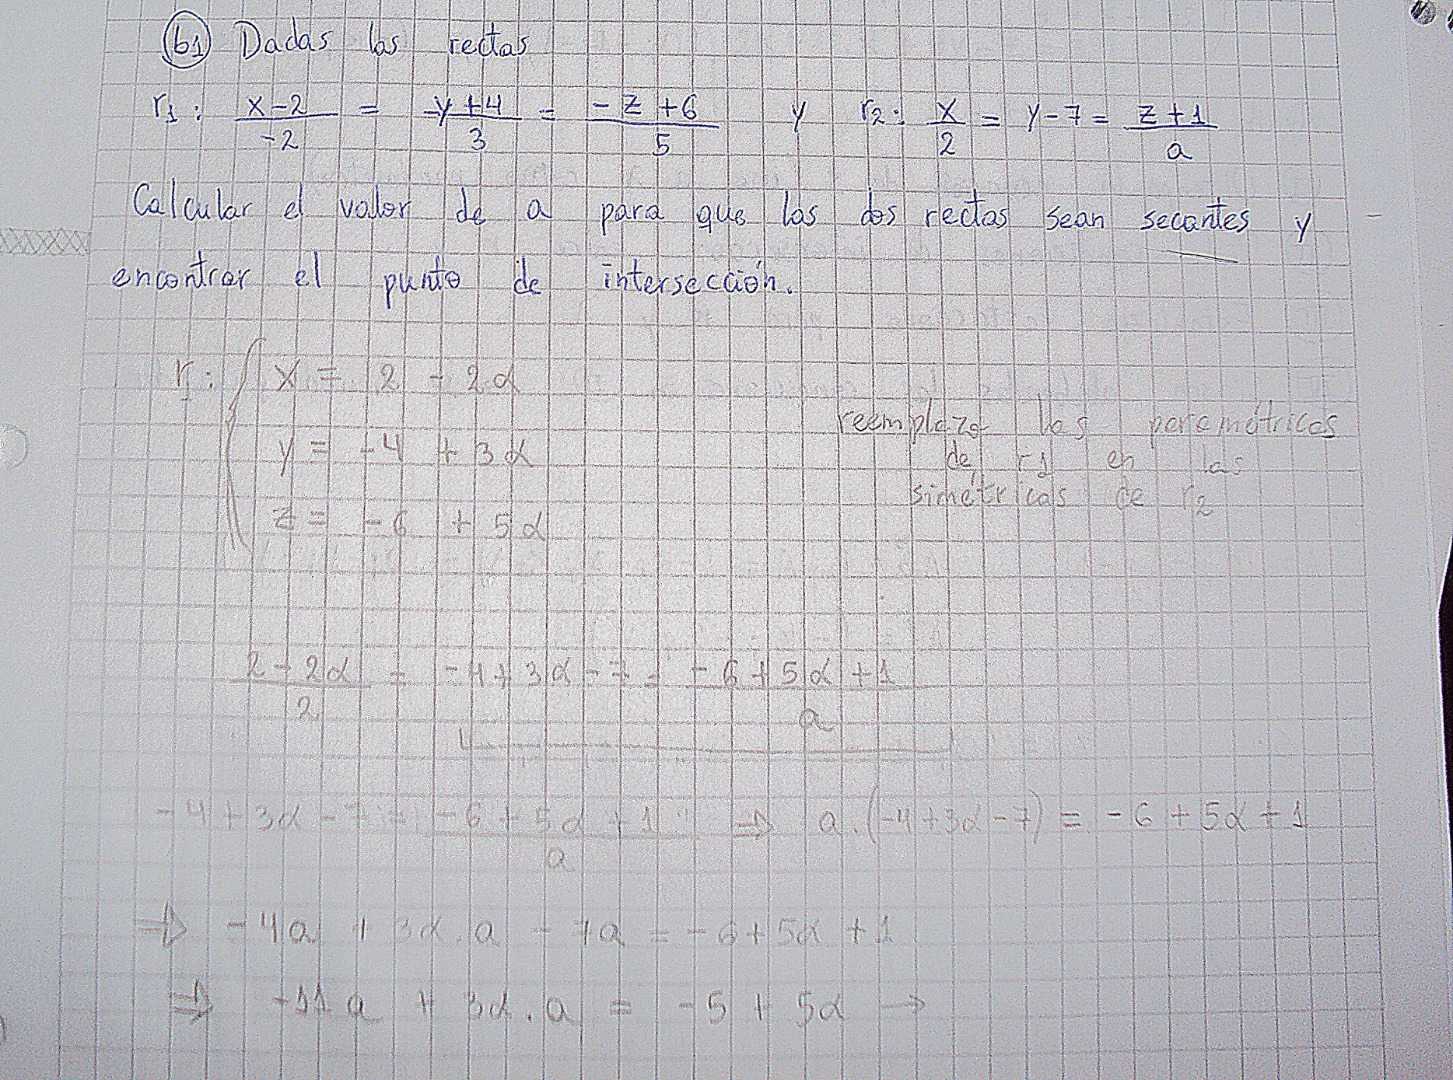 b1) Dadas las rectas
r1: (x-2)/-2 = (-y+4)/3 = (-z+6)/5 y r2: x/2 = y-7 = (z+1)/a
Calcular el valor de a para que las dos rectas sean secantes y
encontrar el punto de intersección.
r: { x = 2 - 2α
y = -4 + 3α
z = -6 + 5α
reemplazo las paramétricas
de r1 en las
simétricas de r2
(2-2α)/2 = -4+3α-7 = (-6+5α+1)/a
-4+3α-7 = (-6+5α+1)/a ⇒ a.(-4+3α-7) = -6+5α+1
⇒ -4a + 3α.a - 7a = -6+5α+1
⇒ -11a + 3α.a = -5 + 5α →